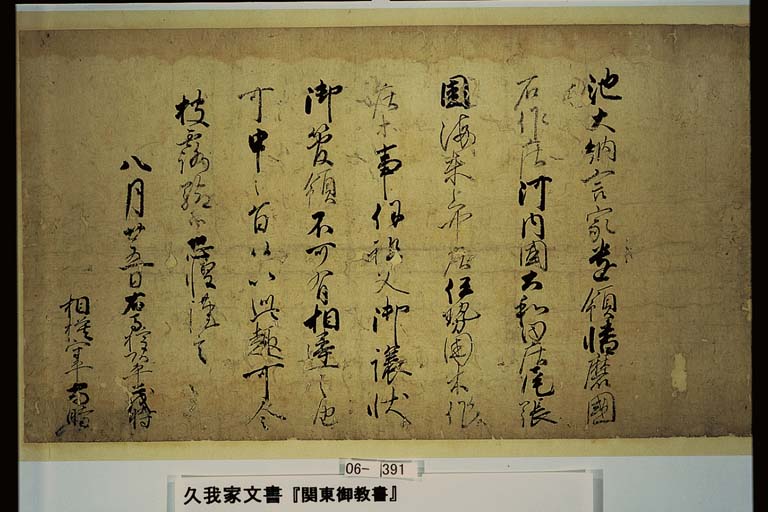 池大納言家遺領播磨國
石作庄河内國大和田庄尾張
國海東上中庄伊勢國木造
庄等事任祖父御譲状
御管領不可有相違之由
可申之旨候以此趣可令
披露給候恐惶謹言
八月廿五日 右馬権頭茂時
相模守守時
06-391
久我家文書『関東御教書』